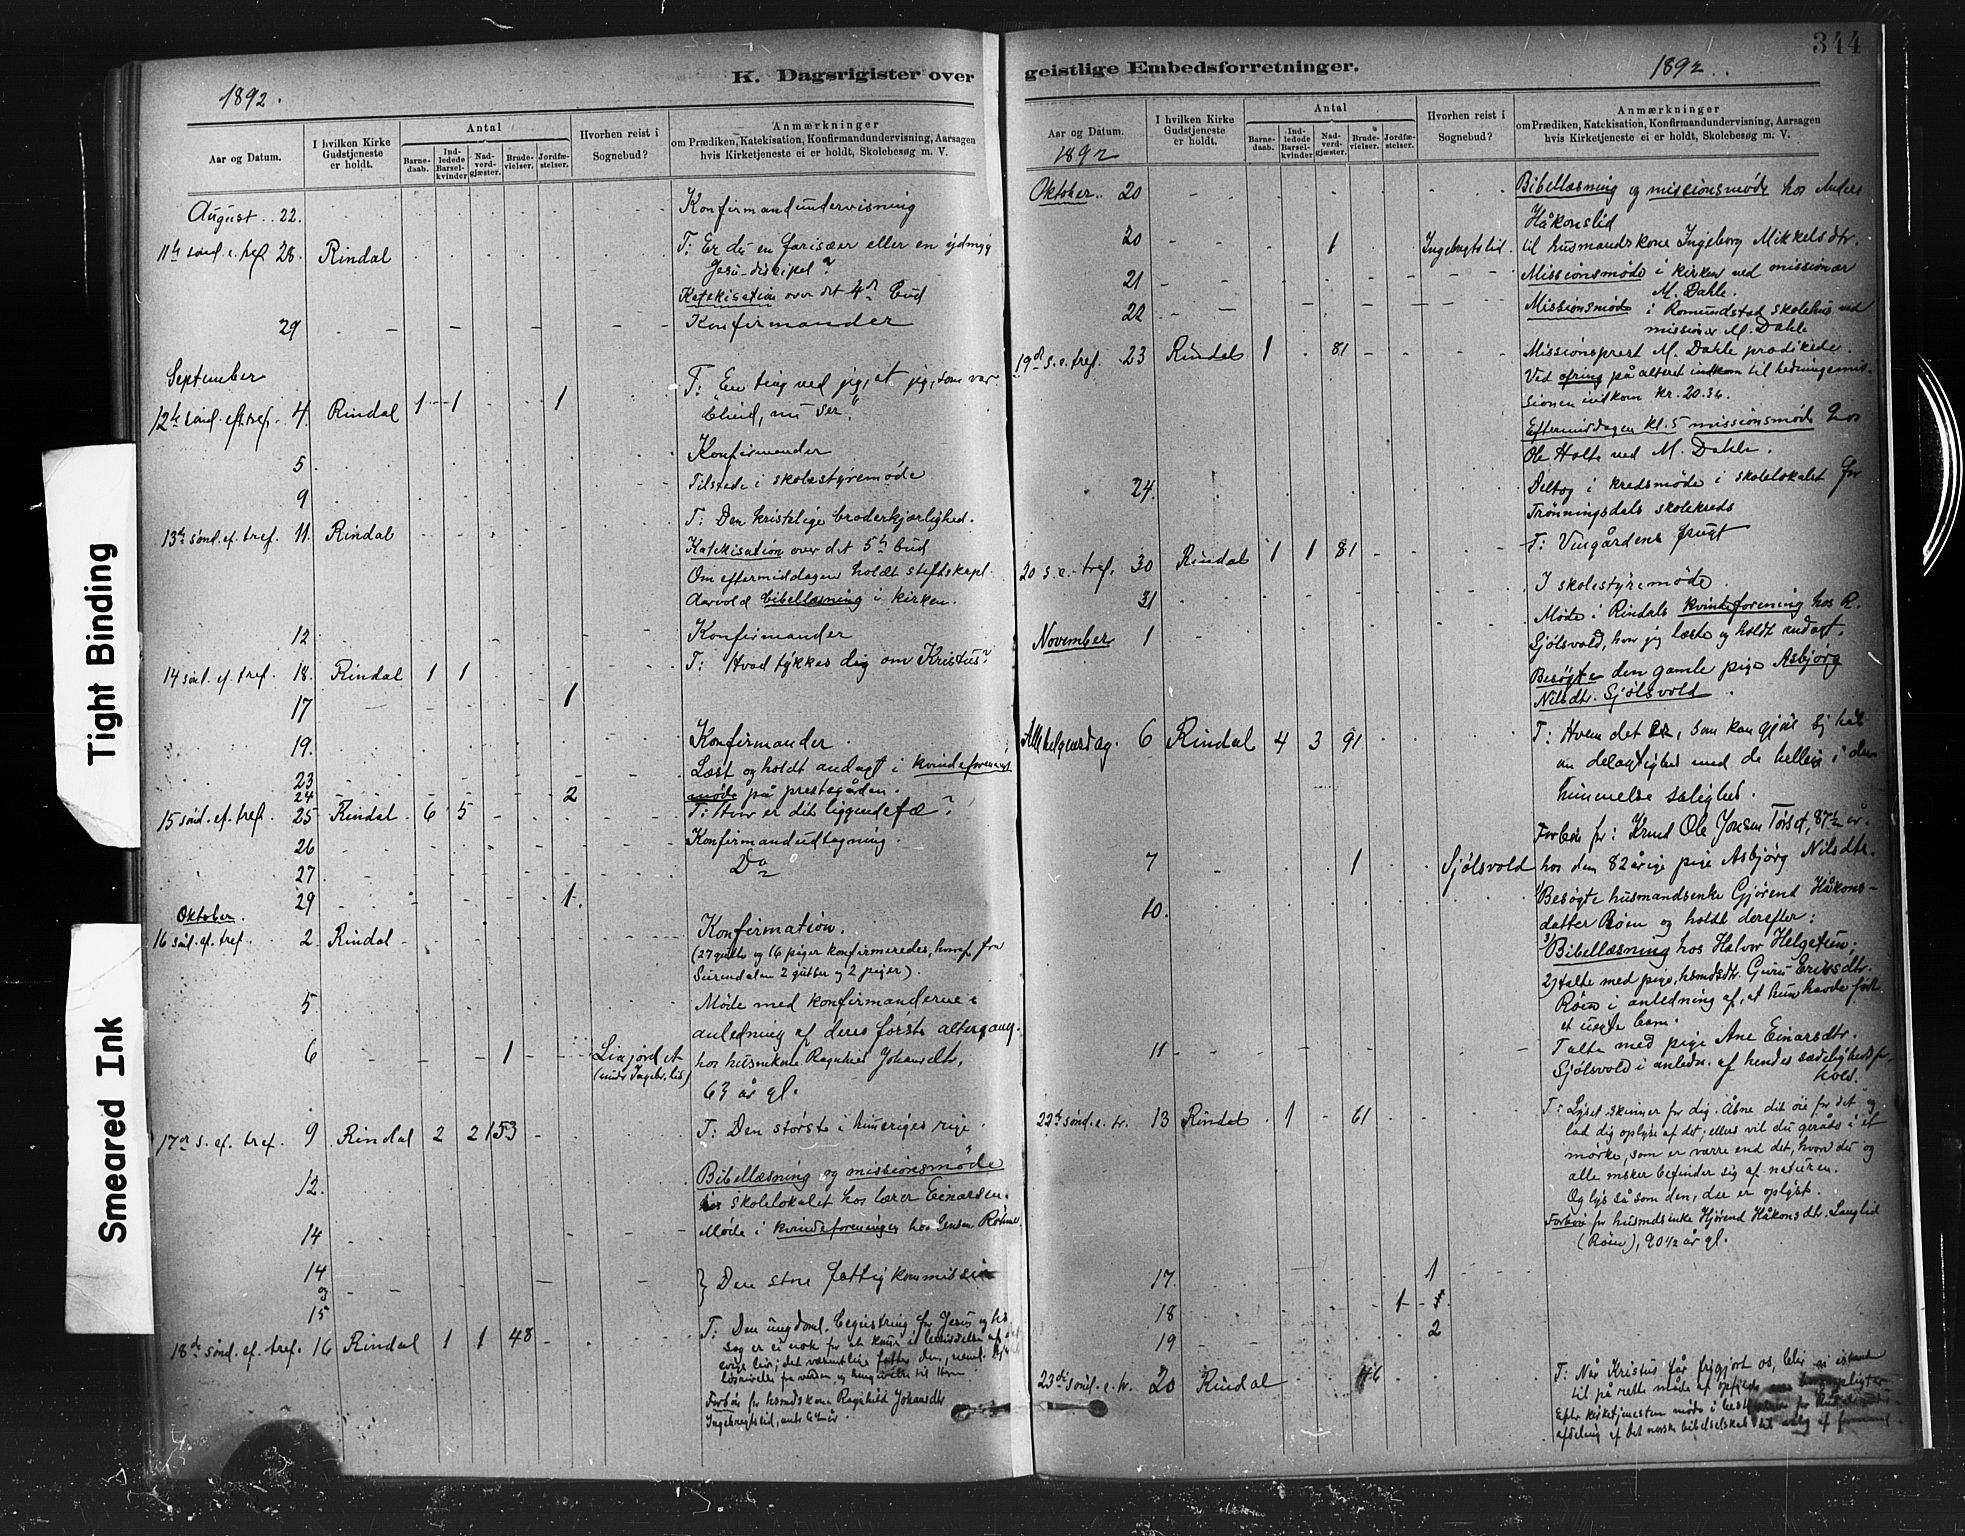 344
K. Dagsrigister over geistlige Embedsforretninger.
1892.
1892.
Aar og Datum.
I hvilken Kirke Gudstjeneste er holdt.
Antal
Barnedaab.
Indledede Barselkvinder
Nadverdgjæster.
Brudevielser.
Jordfæstelser.
Hvorhen reist i Sognebud?
Anmærkninger
om Prædiken, Katekisation, Konfirmandundervisning, Aarsagen
hvis Kirketjeneste ei er holdt, Skolebesøg m. V.
August 22. Konfirmandundervisning
11te sønd. e. tref. 28. Rindal T: Er du en farisæer eller en ydmyg
Jesu-discipel?
Katekisation over det 4de bud
29 Konfirmander
September
12te sønd. eft. tref. 4. Rindal 1 1 1 T: "En ting ved jeg, at jeg, som var
blind, nu ser."
5 Konfirmander
9 Tilstede i skolestyremøde
13de sønd. ef. tref. 11. Rindal T: Den kristelige broderkjærlighed.
Katekisation over det 5te bud
Om eftermiddagen holdt stiftskapl.
Aarvold bibellæsning i kirken.
12 Konfirmander
14 sønd. ef. tref. 18. Rindal 1 1 T: Hvad tykkes dig om Kristus?
17 1
19. Konfirmander.
23 Læst og holdt andagt i kvindeforenings
24 2 møde på prestegården.
15 sønd. ef. tref. 25 Rindal 6 5 T: Hvor er dit liggendefæ?
26 Konfirmandudtagning.
27 Do
29 1
Oktober.
16 sønd. ef. tref. 2 Rindal Konfirmation.
(27 gutter og 16 piger konfirmeredes, hvoraf fra
Surendalen 2 gutter og 2 piger).
5 Møde med konfirmanderne i
anledning af deres første altergang.
6 1 (under Ingebr. lid) hos huskone Ragnhild Johansdtr,
63 år gl.
17de s. ef. tref. 9 Rindal 2 2 153 T: Den største i himeriges rige.
12. Bibellæsning og missionsmøde
skolelokalet hos lærer Einarsen.
14 Møde i kvindeforeningen hos
14 og 15 } Den store fattigkommission
18de sønd. ef. tref. 16 Rindal 1 1 48 T: Den ungdoml. begeistring for Jesus og hs
sag er ei nok for at komme i besiddelse af det
Forbøn for husmdskone Ragnhild Johansdtr
Ingebrigtslid,
Aar og Datum.
I hvilken Kirke Gudstjeneste er holdt.
Antal
Barnedaab.
Indledede Barselkvinder
Nadverdgjæster.
Brudevielser.
Jordfæstelser.
Hvorhen reist i Sognebud?
Anmærkninger
om Prædiken, Katekisation, Konfirmandundervisning, Aarsagen
hvis Kirketjeneste ei er holdt, Skolebesøg m. V.
1892
Oktober 20 Bibellæsning og missionsmøde hos Anders
Håkonslid
20 1 Ingebrigtslid til husmandskone Ingeborg Mikkelsdtr.
21 Missionsmøde i kirken ved missionær
M. Dahle.
22 Missionsmøde i Romundstad skolehus ved
missionær M. Dahle
19de s. e. tref. 23 Rindal 1 81 Missionsprest M. Dahle prædikede.
Ved ofring på alteret indkom til hedningemis-
sionen indkom kr. 20.36.
Eftermiddagen kl. 5 missionsmøde hos
Ole Holte ved M. Dahle.
24. Deltog i kredsmøde i skolelokalet for
Trønningsdals skolekreds
20 s. e. tref. 30 Rindal 1 1 81 T: Vingårdens frugt
31 I skolestyremøde.
November 1 Møde i Rindals kvindeforening hos R.
Sjølsvold, hvor jeg læste og holdt andagt.
Besøgte den gamle pige Asbjørg
Nilsdtr. Sjølsvold.
Allehelgensdag. 6 Rindal 4 3 91 T: Hvem det er, som kan gjøre sig håb
om delagtighed med de hellige i den
himmelske salighed.
Forbøn for: Knud Ole Jonsen Tørset, 87½ år.
7 1 Sjølsvold hos den 82 årige pige Asbjørg Nilsdtr.
10. 1) Besøgte husmandsenke Gjørend Håkons-
datter Røen og holdt derefter:
3) Bibellæsning hos Halvor Helgetun.
2) talte med pige, husmdsdtr. Guru Eriksdtr.
Røen i anledning af, at hun havde født
et uægte barn.
11 Talte med pige Ane Einarsdtr.
Sjølsvold i anledn. af hendes sædelighedsfor-
hold.
22de sønd. e. tr. 13 Rindal 1 61 T: Lyset skinner for dig. Åbne dit øie for det og
lad dig oplyse af det; ellers vil du geråde i et
mørke, som er værre end det, hvori du og
alle msker befinder sig af naturen.
Og lys så som den, der er oplyst.
Forbøn for husmdsenke Gjørend Håkonsdtr. Langlid
(Røen), 90½ år gl.
17. 1
18 1 1
19 2
23de sønd. e. tr. 20 Rindal 46 T: Når Kristus får frigjort os, blir vi istand
til på rette måde at opfylde
Efter kirketjenesten møde i
afdeling af det norske bibelselskab
Tight Binding
Smeared Ink